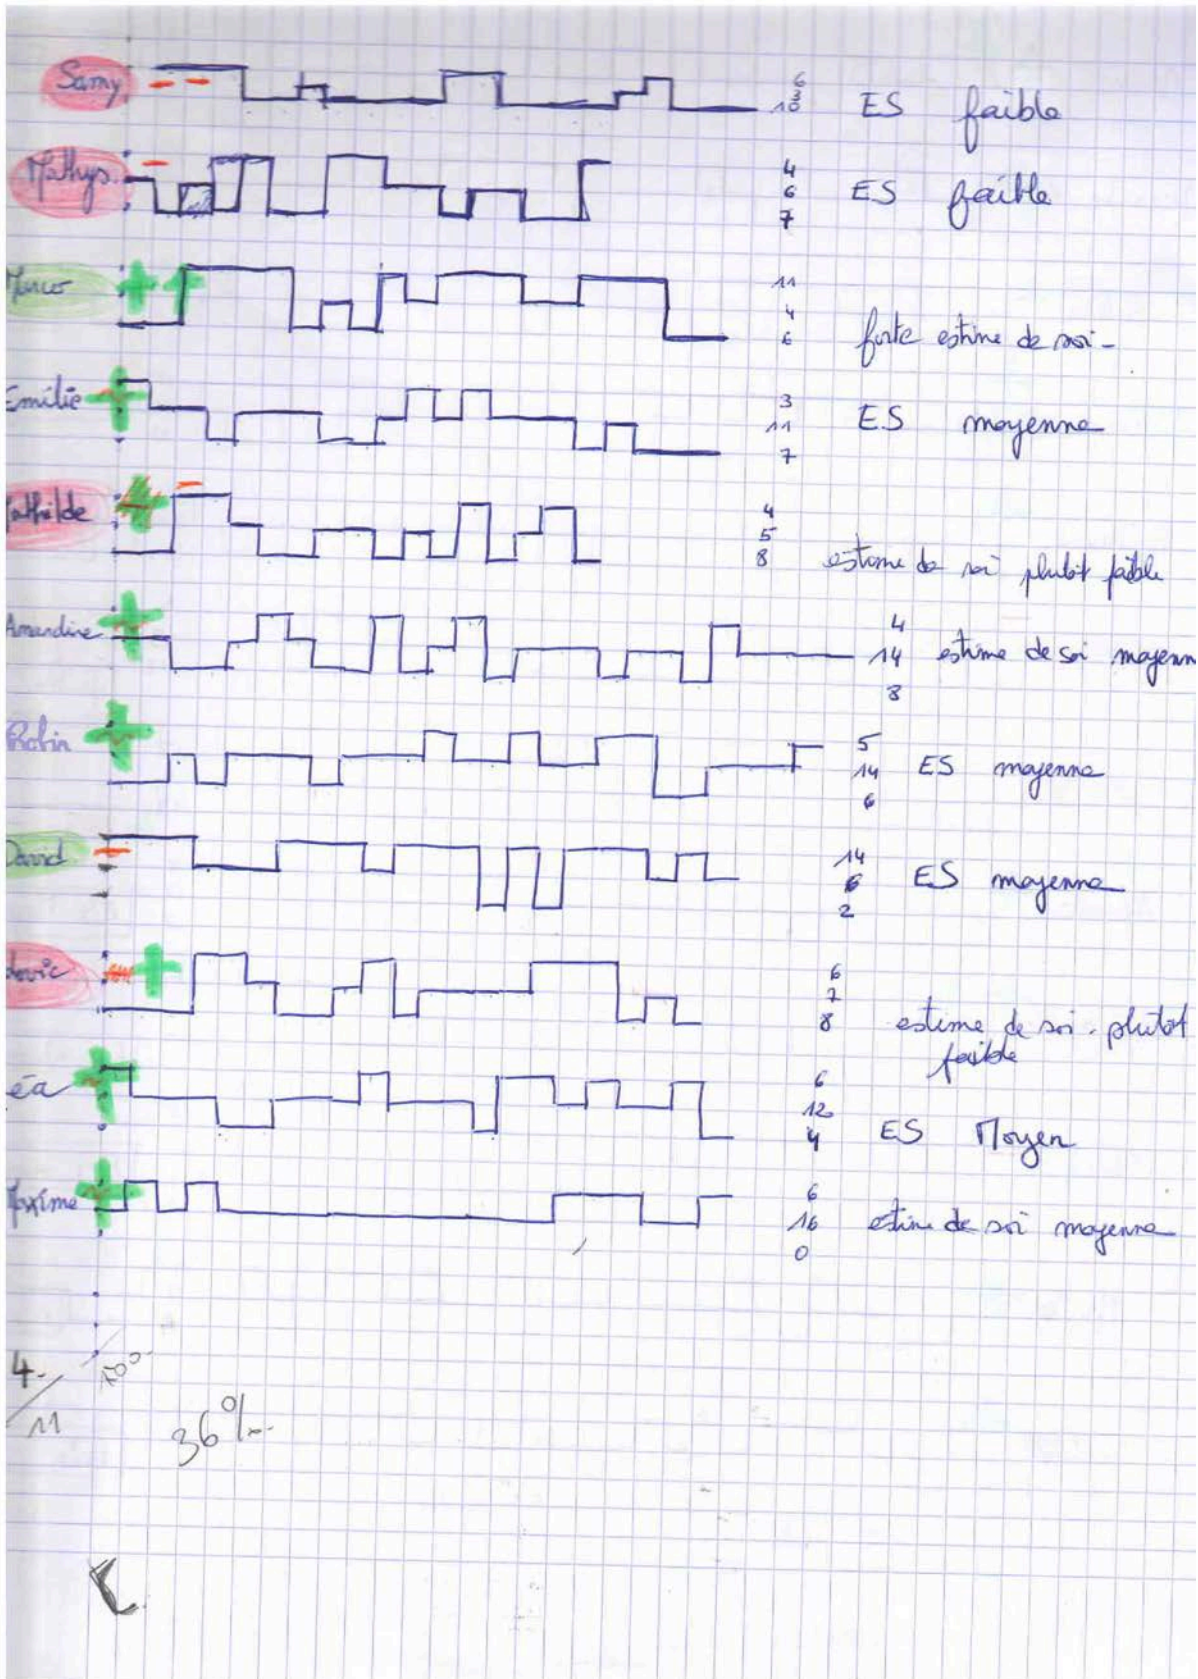 Samy 6 3 10 ES faible
Mathys. 4 6 7 ES faible
Marco 11 4 6 forte estime de soi -
Emilie 3 11 7 ES moyenne
athilde 4 5 8 estime de soi plutôt faible
Amandine 4 14 8 estime de soi moyenn
Robin 5 14 6 ES moyenne
David 14 6 2 ES moyenne
dovic 6 7 8 estime de soi - plutôt
faible
éa 6 12 4 ES Moyen
Maxime 6 16 0 estime de soi moyenne
4. 100
11
36%